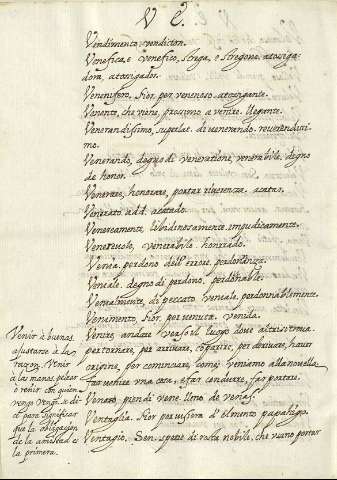 V E.
Vendimento, vendicion.
Venefica, e venefico, Strega, e Stregone, atosiga-
dora, atosigador.
Venenifero, Fior. per venenoso,
Venente, che viene, prossimo a venire. llegante.
Venerandissimo, superlat. di venerando. reverendissi-
mo.
Venerando, degno di veneratione, venerabile. degno
de honor.
Venerare, honorare, portar riverenza. acatar.
Venerato add. acatado.
Venereamente, libidinosamente. impudicamente.
Venerevolo, venerabile. honrado.
Venia, perdono dell'errore. perdonanza.
Veniale. degno di perdono. perdonable.
Venialmente, di peccato veniale. perdonablemente.
Venimento, Fior. per venuta. venida.
Venire, andare verso il luogo dove altri si trova.
per tornare, per arrivare, per derivare, haver
origine, per cominciare, come; veniamo alla novella
far venire una cosa, e far condurre, far portare.
Venato, pien di vene. lleno de venas.
Ventaglia. Fior. per visiera d'elmento. papahigo.
Ventagio. Sen. spetie di nobile, che
Venir à buenas
ajustarse à la
razon. Venir
a las manos, pelear
o reñir con quien
vengo vengo. se di-
ce para significar
que la obligacion
de la amistad es
la primera.